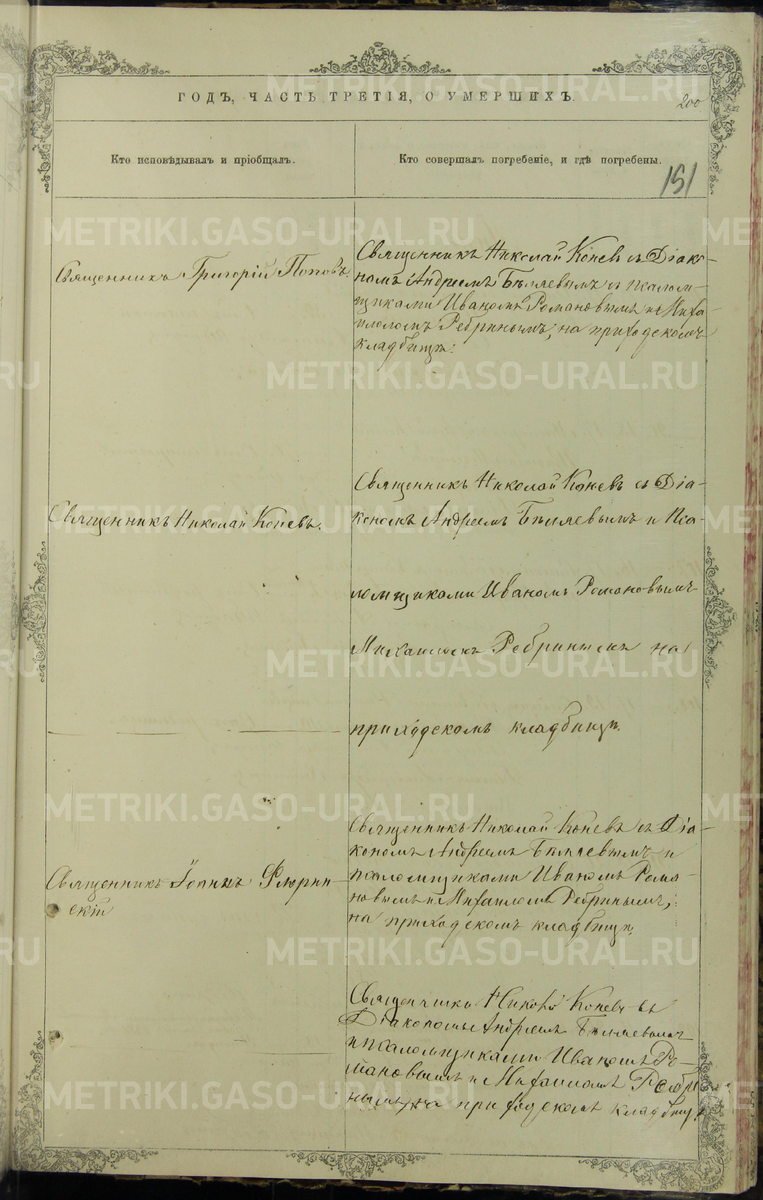 ГОДЪ, ЧАСТЬ ТРЕТІЯ, О УМЕРШИХЪ.
200
Кто исповѣдывалъ и пріобщалъ.
Кто совершалъ погребеніе, и гдѣ погребены.
151
Священникъ Григорій Поповъ.
Священникъ Николай Коневъ съ Діако-
номъ Андреемъ Бѣляевымъ и псалом-
щиками Иваномъ Романовымъ и Миха-
иломъ Ребринымъ, на приходскомъ
кладбищѣ.
Священникъ Николай Коневъ.
Священникъ Николай Коневъ съ Діа-
кономъ Андреемъ Бѣляевымъ и Пса-
ломщиками Иваномъ Романовымъ
Михаиломъ Ребринымъ на
приходскомъ кладбищѣ.
Священникъ Іоаннъ Флорин-
скій
Священникъ Николай Коневъ съ Діа-
кономъ Андреемъ Бѣляевымъ и
псаломщиками Иваномъ Рома-
новымъ и Михаиломъ Ребринымъ,
на приходскомъ кладбищѣ.
Коневъ съ
Діакономъ Андреемъ Бѣляевымъ
и псаломщиками Иваномъ Ро-
мановымъ и Михаиломъ Ребри-
нымъ, на приходскомъ кладбищѣ.
METRIKI.GASO-URAL.RU